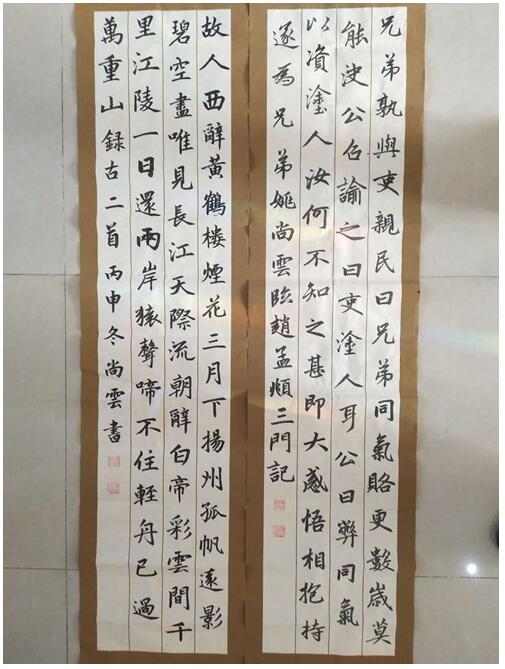 兄弟孰與吏親民曰兄弟同氣賂更數歲莫
能決公召諭之曰吏塗人耳公曰弊同氣
以資塗人汝何不知之甚即大感悟相抱持
遂為兄弟姚尚雲臨趙孟頫三門記
故人西辭黃鶴楼煙花三月下揚州孤帆遠影
碧空盡唯見長江天際流朝辭白帝彩雲間千
里江陵一日還兩岸猿聲啼不住輕舟已過
萬重山録古二首丙申冬尚雲書